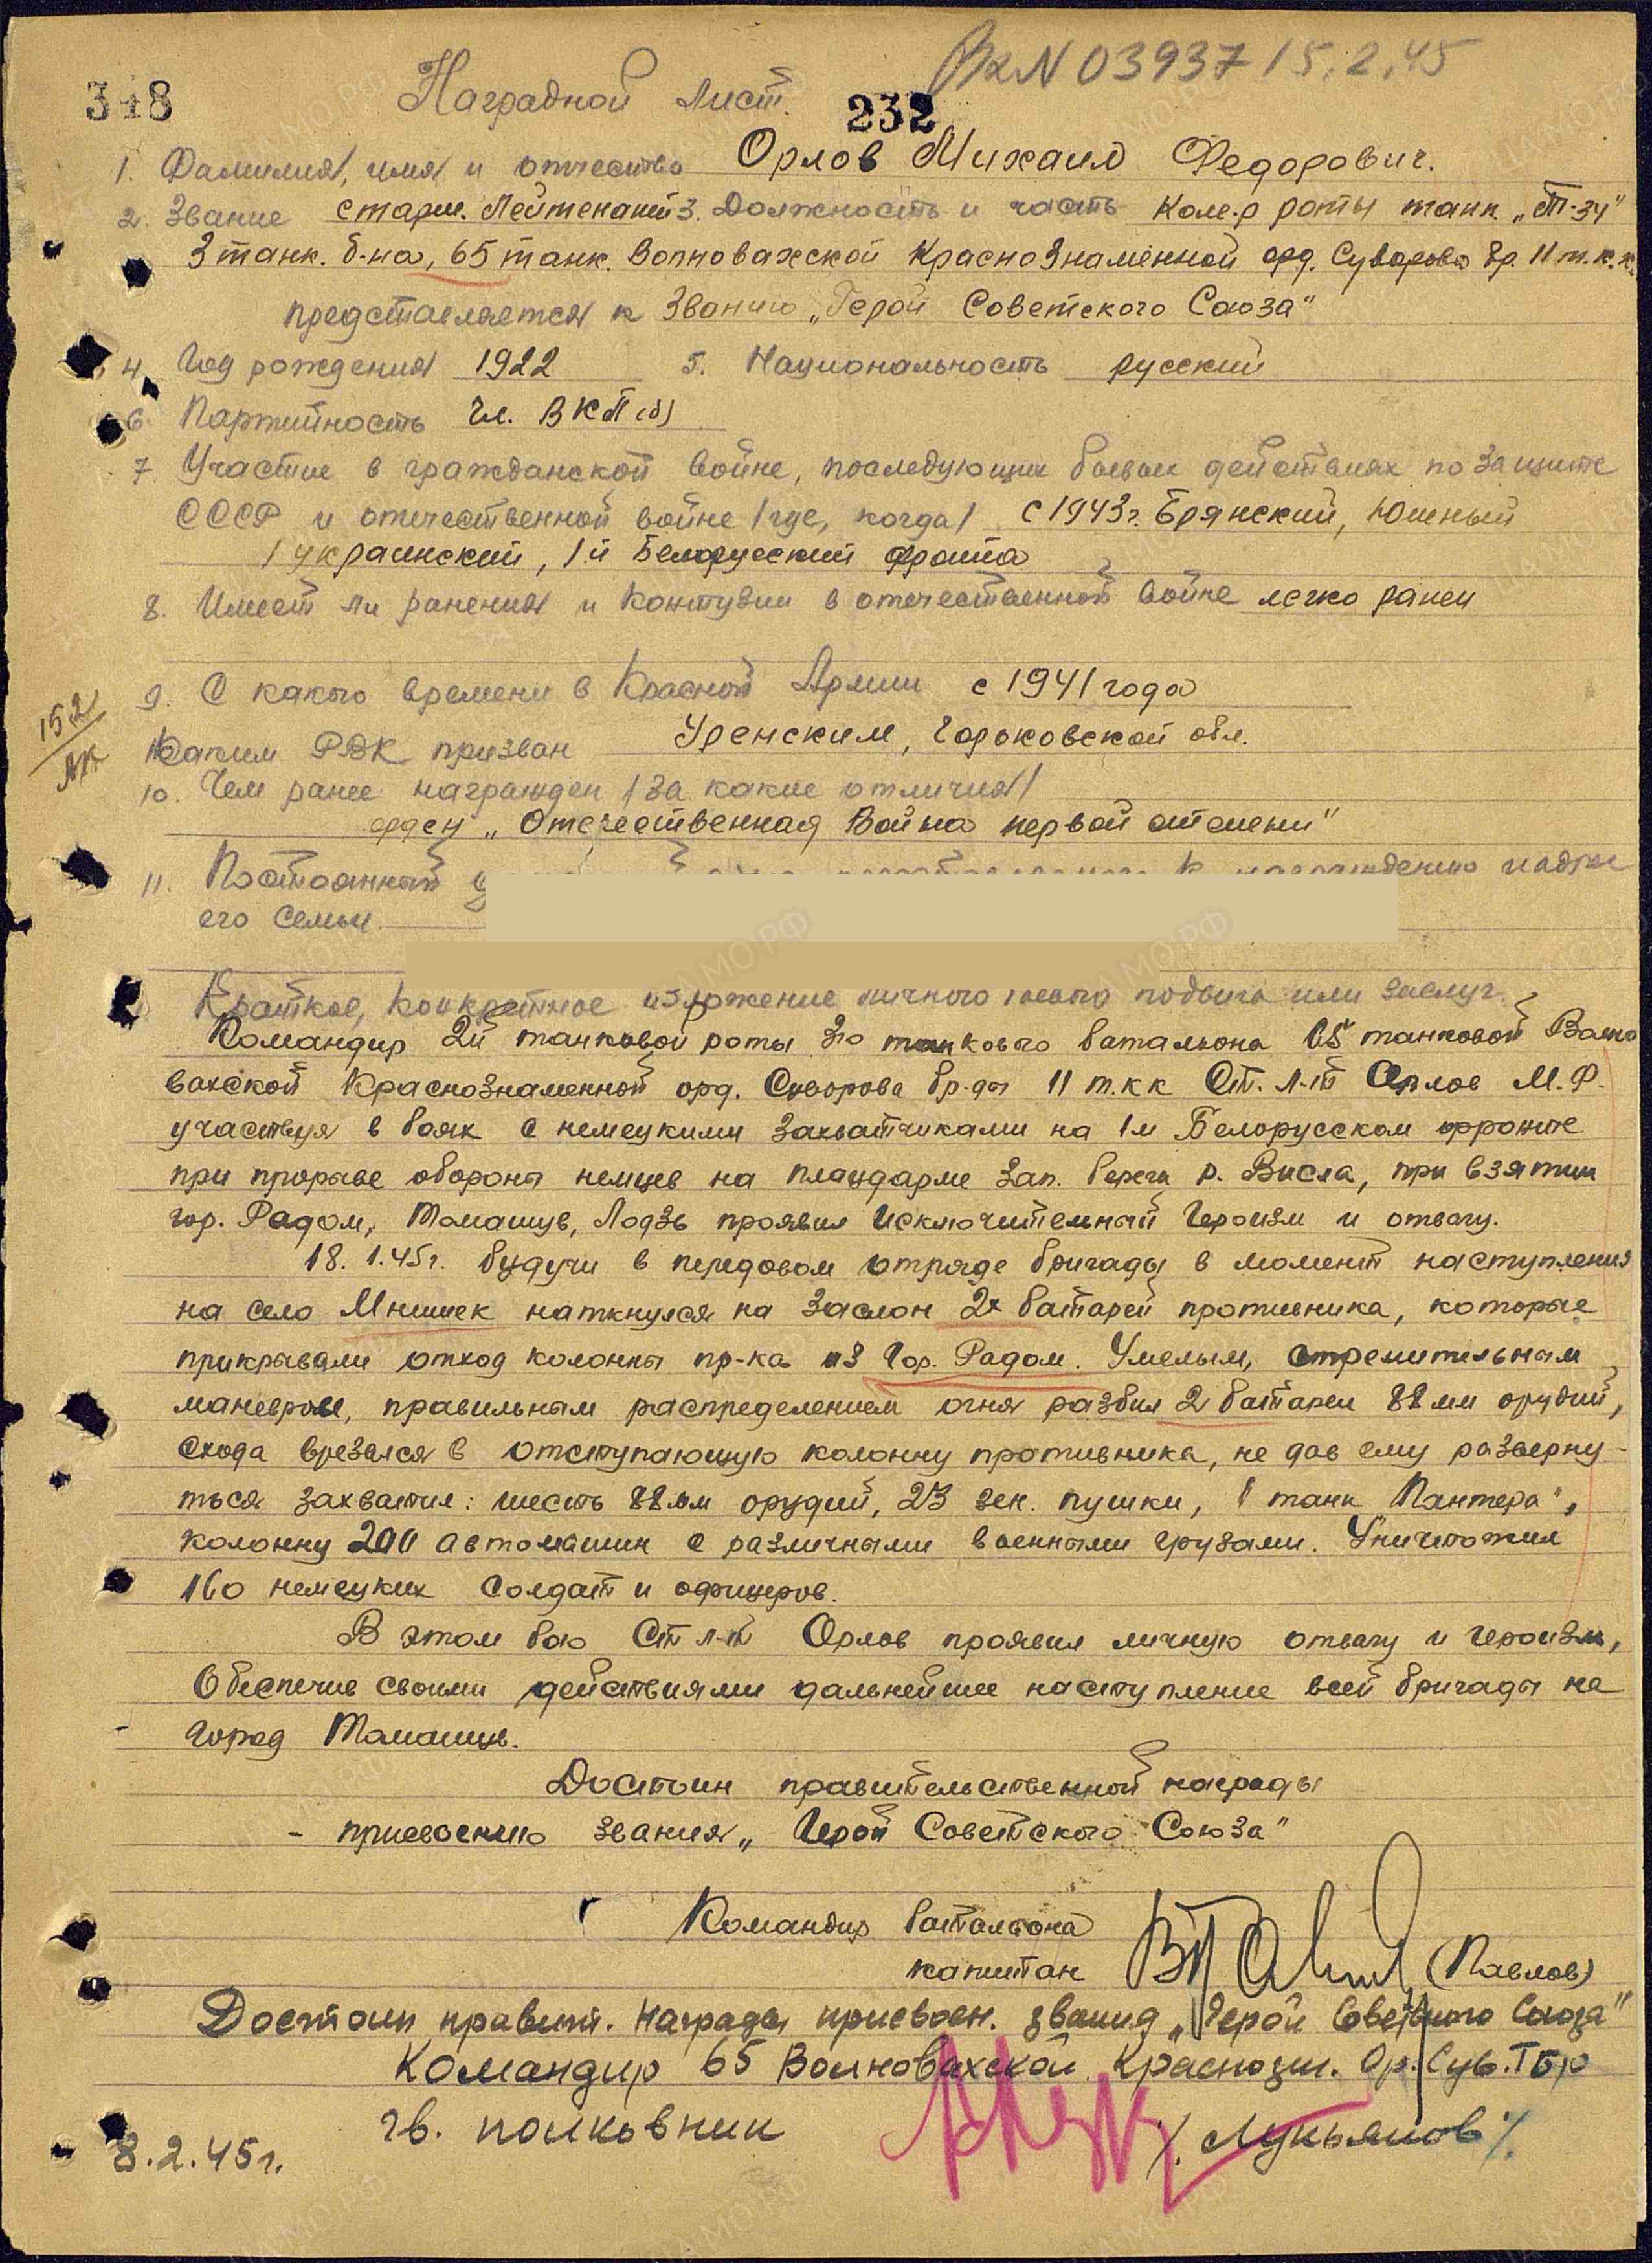 Вх N 03937 15.2.45
348 Наградной лист. 232
1. Фамилия, имя и отчество Орлов Михаил Федорович.
2. Звание старш. Лейтенант 3. Должность и часть Ком-р роты танк. „Т-34"
3 танк. б-на, 65 танк. Волновахской Краснознаменной орд. Суворова бр. 11 т.к.к.
представляется к званию „Герой Советского Союза"
4. Год рождения 1922 5. Национальность русский
6. Партийность Чл. ВКП(б)
7. Участие в гражданской войне, последующих боевых действиях по защите
СССР и отечественной войне /где, когда/ с 1943г. Брянский, Южный
1 украинский, 1й Белорусский фронта
8. Имеет ли ранения и контузии в отечественной войне легко ранен
9. С какого времени в Красной Армии с 1941 года
15.2
Каким РВК призван Уренским, Горьковской обл.
10. Чем ранее награжден /за какие отличия/
орден „Отечественная Война первой степени"
11. Постоянный к награждению и адрес
его семьи
Краткое, конкретное изложение личного боевого подвига или заслуг.
Командир 2й танковой роты 3го танкового батальона 65 танковой Волно
вахской Краснознаменной орд. Суворова бр-ды 11 т.к.к Ст. л-т Орлов М.Ф.
участвуя в боях с немецкими захватчиками на 1м Белорусском фронте
при прорыве обороны немцев на плацдарме зап. берега р. Висла, при взятии
гор. Радом, Томашув, Лодзь проявил исключительный героизм и отвагу.
18.1.45г. будучи в передовом отряде бригады в момент наступления
на село Мнишек наткнулся на заслон 2х батарей противника, которые
прикрывали отход колонны пр-ка из гор. Радом. Умелым, стремительным
маневром, правильным распределением огня разбил 2 батареи 88 мм орудий,
схода врезался в отступающую колонну противника, не дав ему разверну-
ться захватил: шесть 88 мм орудий, 23 зен. пушки, 1 танк "Пантера",
колонну 200 автомашин с различными военными грузами. Уничтожил
160 немецких солдат и офицеров.
В этом бою Ст л-т Орлов проявил личную отвагу и героизм,
обеспечив своими действиями дальнейшее наступление всей бригады на
город Томашув.
Достоин правительственной награды
- присвоению звания „Герой Советского Союза"
Командир батальона
капитан (Павлов)
Достоин правит. награды присвоен. звания „Герой Советского Союза"
Командир 65 Волновахской Краснозн. Ор. Сув. Тбр
гв. полковник /. Лукьянов /.
8.2.45г.